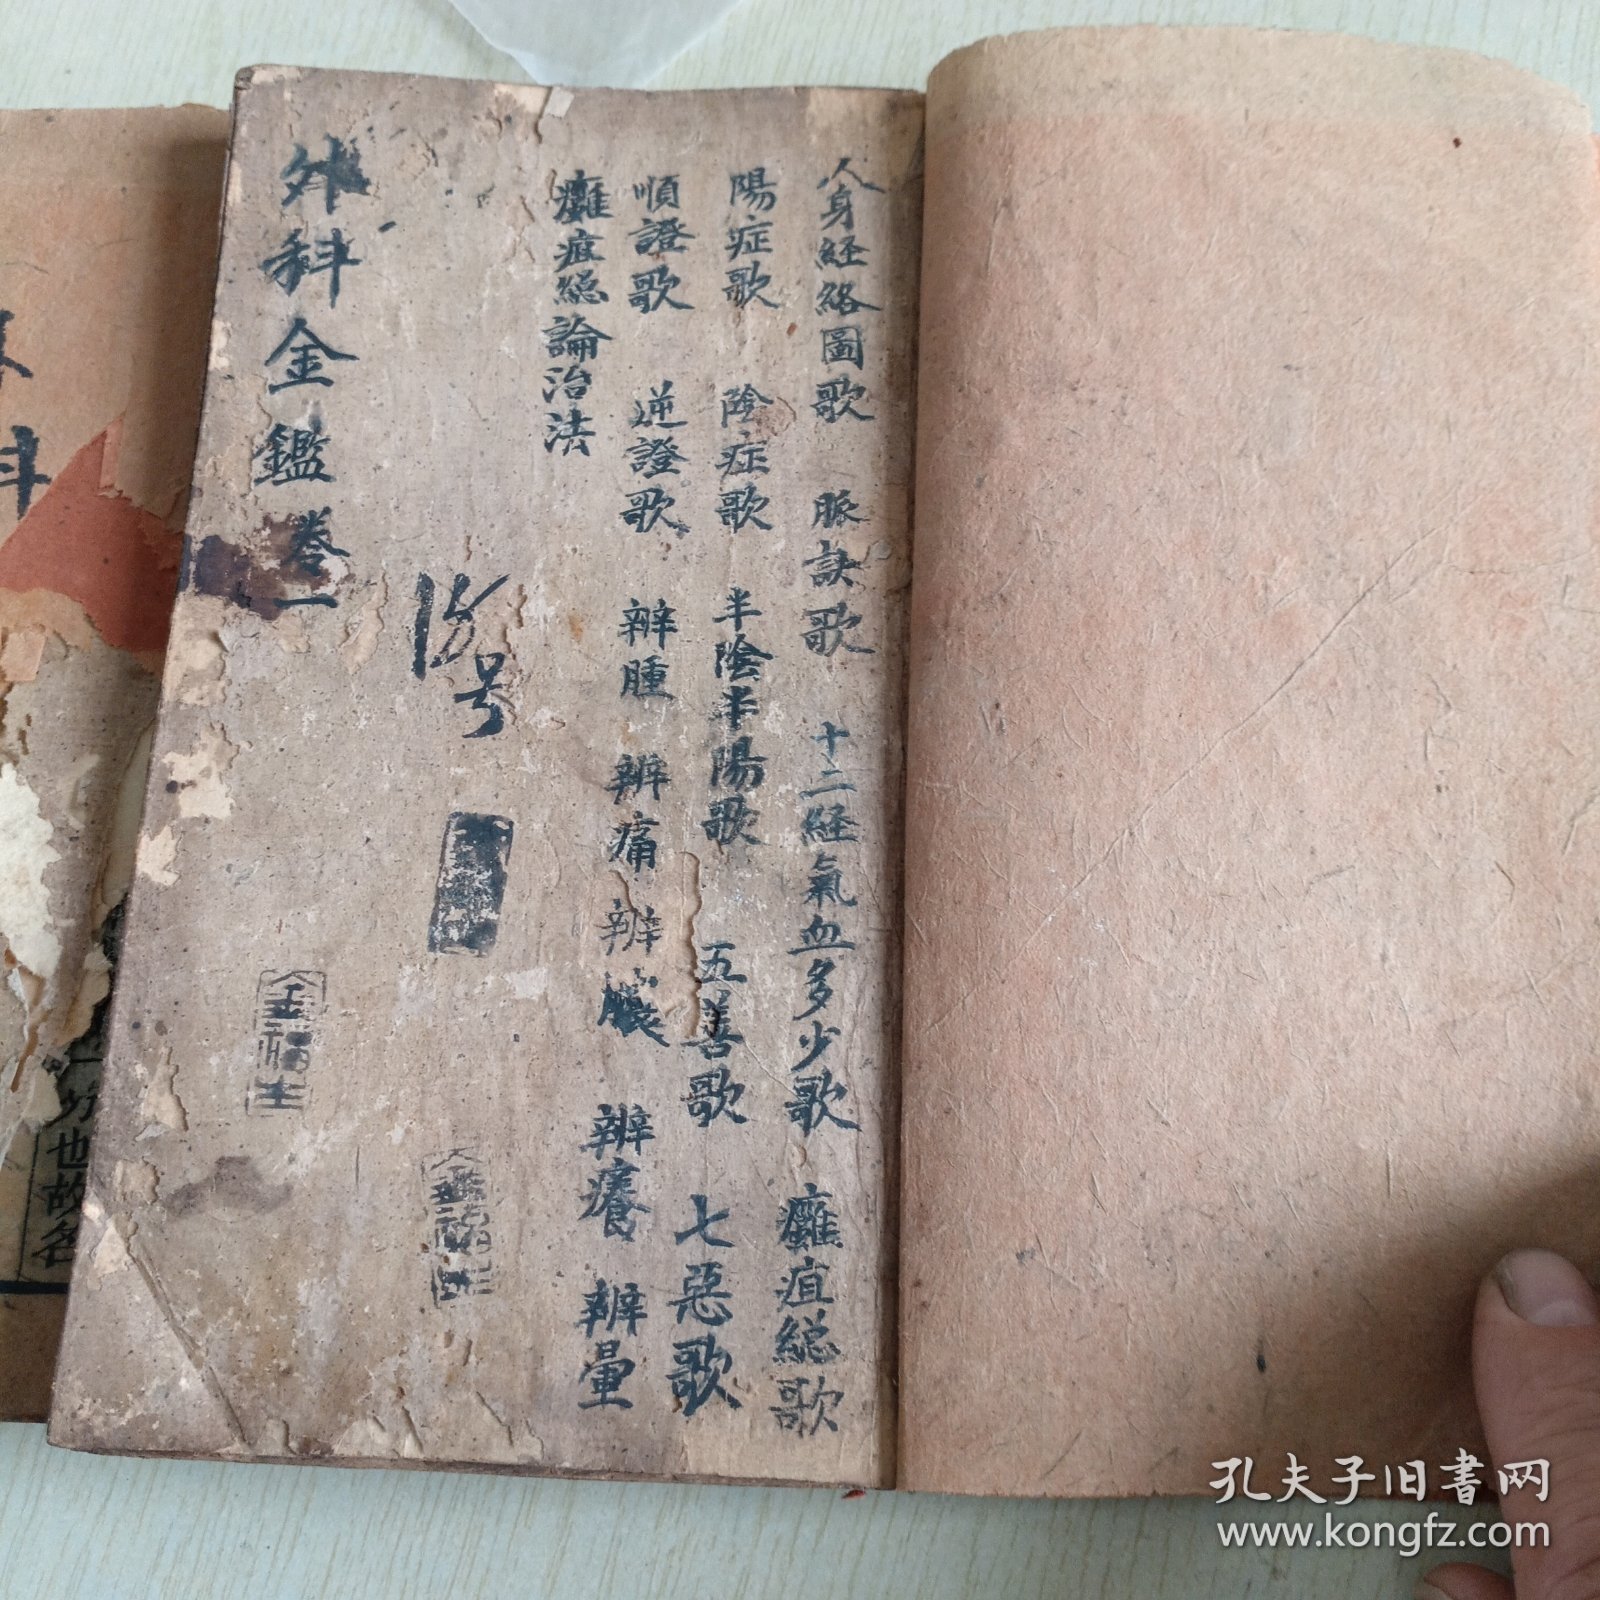 人身経絡圖歌 脈訣歌 十二経氣血多少歌 癰疽総歌
陽症歌 陰症歌 半陰半陽歌 五善歌 七惡歌
順證歌 逆證歌 辦腫 辦痛 辦膿 辦癢 辦暈
癰疽総論治法
号
外科金鑑卷一
金福生
金福生
科
也故名
孔夫子旧書网
www.kongfz.com